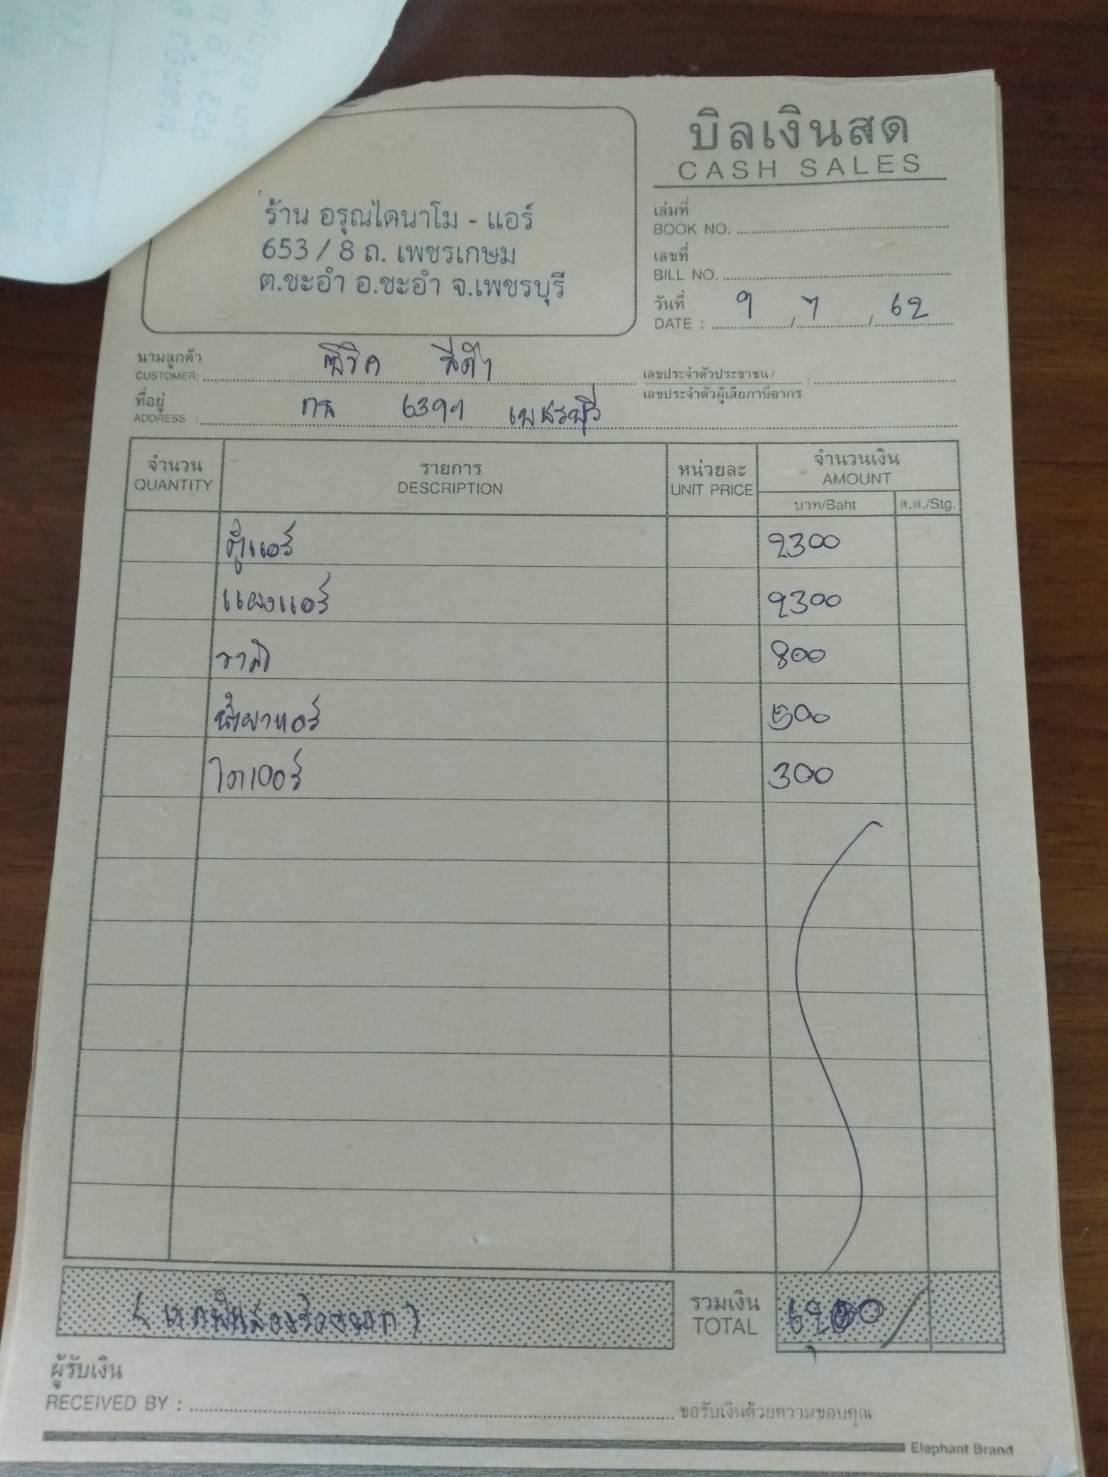 บิลเงินสด
CASH SALES
ร้าน อรุณไดนาโม - แอร์
653 / 8 ถ. เพชรเกษม
ต.ชะอำ อ.ชะอำ จ.เพชรบุรี
เล่มที่
BOOK NO.
เลขที่
BILL NO.
วันที่
DATE : 9 / 7 / 62
นามลูกค้า ซีวิค สีดำ
CUSTOMER:
เลขประจำตัวประชาชน/ :
เลขประจำตัวผู้เสียภาษีอากร
ที่อยู่ กธ 6391 เพชรบุรี
ADDRESS :
จำนวน รายการ หน่วยละ จำนวนเงิน
QUANTITY DESCRIPTION UNIT PRICE AMOUNT
บาท/Baht ส.ต./Stg.
ตู้แอร์ 2300
แผงแอร์ 2300
วาล์ว 800
น้ำยาแอร์ 500
ไดเออร์ 300
(หกพันสองร้อยบาท) รวมเงิน 6,200
TOTAL
ผู้รับเงิน
RECEIVED BY : ขอรับเงินด้วยความขอบคุณ
Elephant Brand